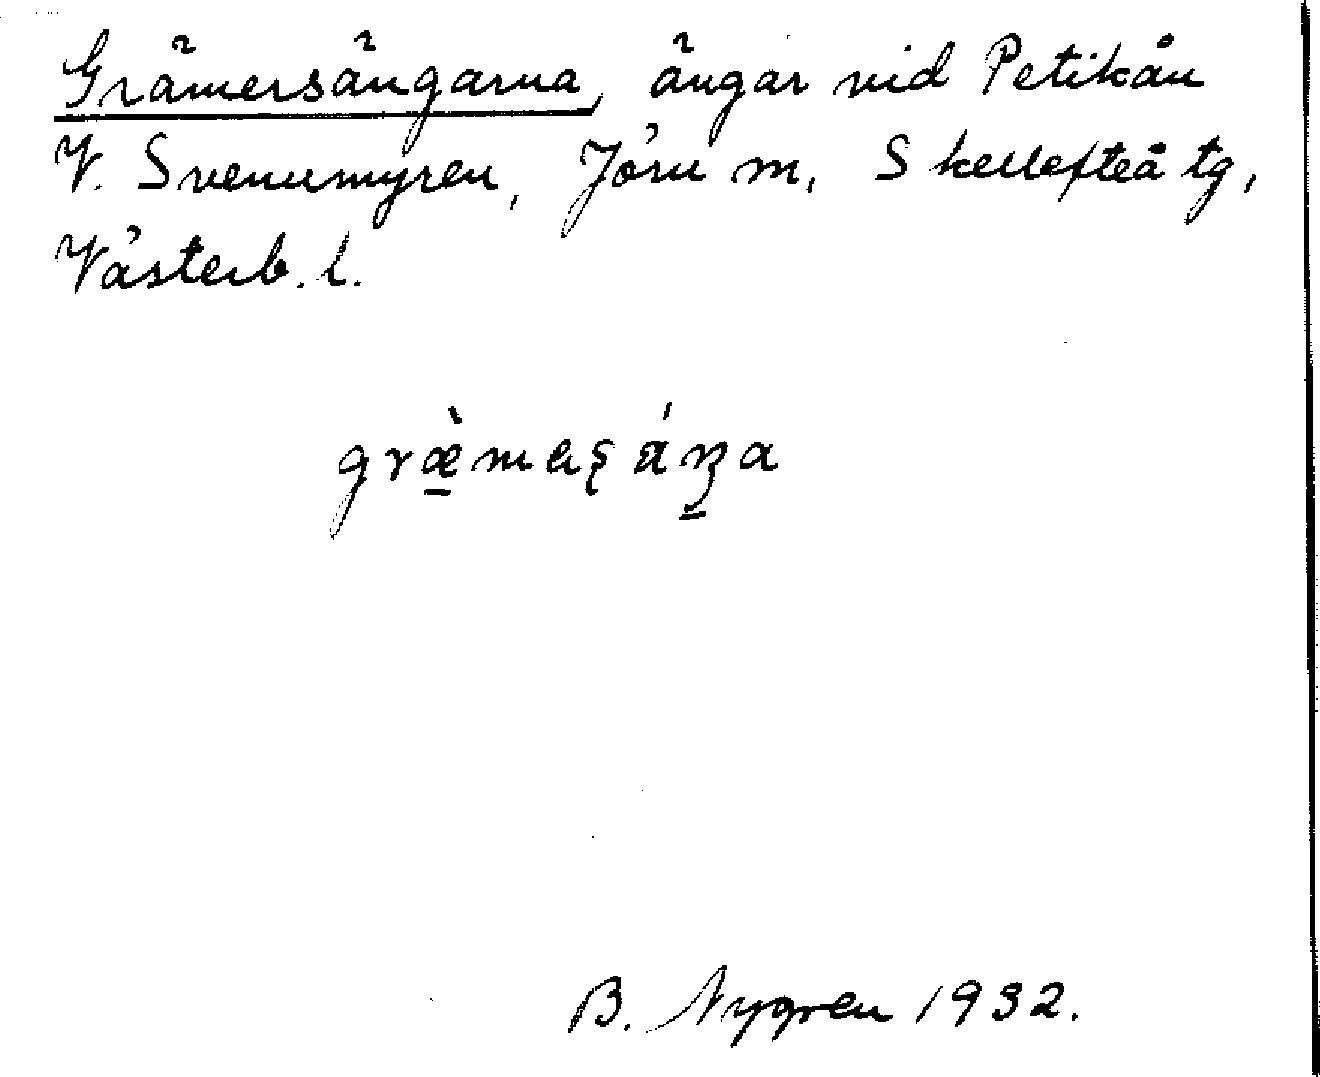 Grämersängarna, ängar vid Petikån
V. Svenumyren, Jörn m, Skellefteå tg,
Västerb. l.
græ̀maʂáŋa
B. Nygren 1932.